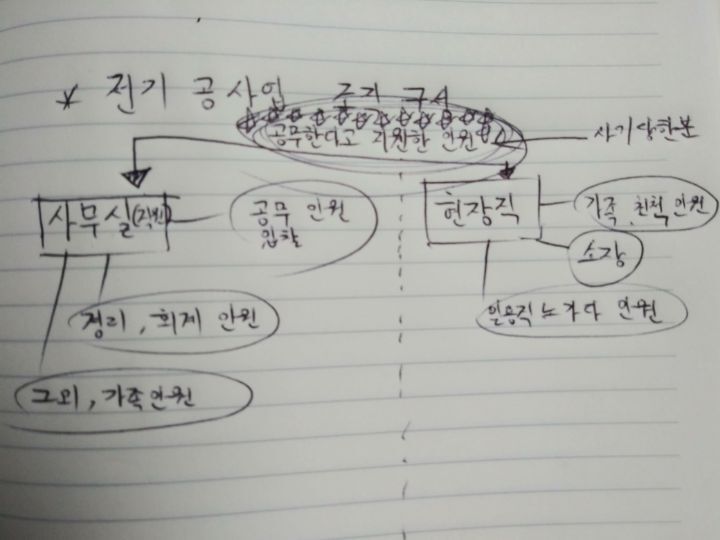 * 전기 공사업 조직 구성
공무한다고 지원한 인원
사기당한분
사무실(직원)
공무 인원
입찰
현장직
가족, 친척 인원
소장
일용직 노가다 인원
경리, 회계 인원
그외, 가족인원